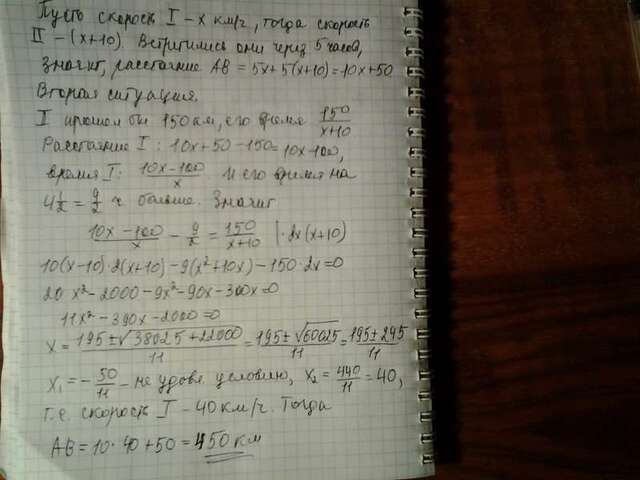 Пусть скорость I – x км/ч, тогда скорость
II – (x+10). Встретились они через 5 часов,
значит, расстояние AB = 5x+5(x+10)=10x+50
Вторая ситуация.
I прошёл бы 150 км, его время 150/(x+10)
Расстояние I: 10x+50-150=10x-100,
время I: (10x-100)/x и его время на
4 1/2 = 9/2 ч больше. Значит
(10x-100)/x - 9/2 = 150/(x+10) |·2x(x+10)
10(x-10)·2(x+10)-9(x²+10x)-150·2x=0
20x²-2000-9x²-90x-300x=0
11x²-390x-2000=0
x = (195±√(38025+22000))/11 = (195±√60025)/11 = (195±245)/11
x₁ = -50/11 - не удовл. условию, x₂ = 440/11 = 40,
т.е. скорость I - 40 км/ч. Тогда
AB = 10·40+50 = 450 км